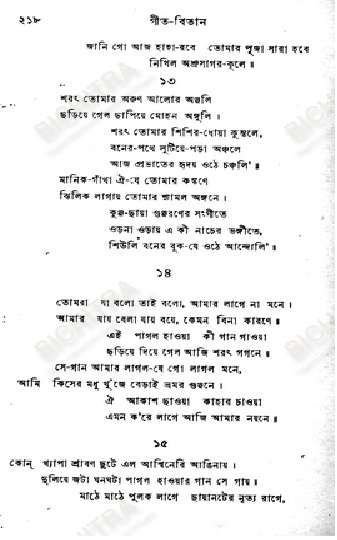 ২১৮ গীত-বিতান
জানি গো আজ হাহা-রবে তোমার পূজা সারা হবে
নিখিল অশ্রুসাগর-কূলে॥
১৩
শরৎ তোমার অরুণ আলোর অঞ্জলি
ছড়িয়ে গেল ছাপিয়ে মোহন অঙ্গুলি।
শরৎ তোমার শিশির-ধোয়া কুন্তলে,
বনের-পথে লুটিয়ে-পড়া অঞ্চলে
আজ প্রভাতের হৃদয় ওঠে চঞ্চলি'॥
মানিক-গাঁথা ঐ-যে তোমার কঙ্কণে
ঝিলিক লাগায় তোমার শ্যামল অঙ্গনে।
কুঞ্জ-ছায়া গুঞ্জরণের সংগীতে
ওড়না ওড়ায় এ কী নাচের ভঙ্গীতে,
শিউলি বনের বুক-যে ওঠে আন্দোলি'॥
১৪
তোমরা যা বলো তাই বলো, আমার লাগে না মনে।
আমার যায় বেলা যায় বয়ে, কেমন বিনা কারণে॥
এই পাগল হাওয়া কী গান গাওয়া
ছড়িয়ে দিয়ে গেল আজি শরৎ গগনে॥
সে-গান আমার লাগল-যে গো লাগল মনে,
আমি কিসের মধু খুঁজে বেড়াই ভ্রমর গুঞ্জনে।
ঐ আকাশ ছাওয়া কাহার চাওয়া
এমন ক'রে লাগে আজি আমার নয়নে॥
১৫
কোন্ খ্যাপা শ্রাবণ ছুটে এল আশ্বিনেরি আঙিনায়।
দুলিয়ে জটা ঘনঘটা পাগল হাওয়ার গান সে গায়॥
মাঠে মাঠে পুলক লাগে ছায়ানটের নৃত্য রাগে,
BICHITRA